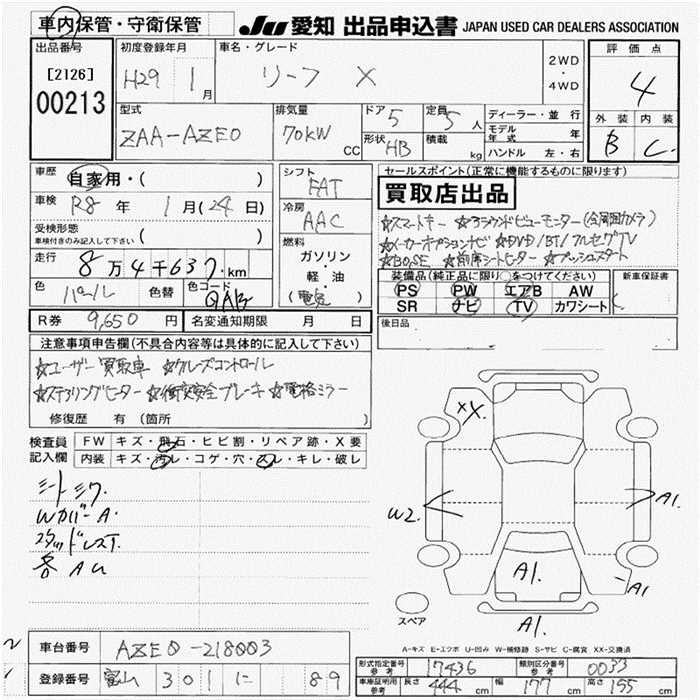 車内保管・守衛保管 JU 愛知 出品申込書 JAPAN USED CAR DEALERS ASSOCIATION
出品番号 初度登録年月 車名・グレード 2WD・4WD 評価点
[2126] H29 1月 リーフ X 4
00213
型式 排気量 ドア 5 定員 5人 ディーラー・並行 外装 内装
ZAA-AZE0 70kW CC 形状 HB 積載 kg モデル年式 年 B C
ハンドル 左・右
車歴 自家用・( ) シフト FAT セールスポイント(正常に機能するものに限ります)
車検 R8年 1月(24日) 冷房 AAC 買取店出品
受検形態 車検付きのみ記入して下さい ( ) 燃料 ☆スマートキー ☆アラウンドビューモニター(全周囲カメラ)
走行 8万4千637km ガソリン・軽油・(電気) ☆メーカーオプションナビ ☆DVD/BT/フルセグTV
☆BOSE ☆前席シートヒーター ☆プッシュスタート
色 パール 色替 色コード QAB 装備品(純正品に限り○をつけてください) 新車保証書
PS PW エアB AW
SR ナビ TV カワシート
R券 9,650円 名変通知期限 月 日 後日品
注意事項申告欄(不具合内容等は具体的に記入して下さい)
☆ユーザー買取車 ☆クルーズコントロール
☆ステアリングヒーター ☆衝突安全ブレーキ ☆電格ミラー
修復歴 有(箇所
検査員記入欄 FW キズ・飛石・ヒビ割・リペア跡・X要
内装 キズ・汚レ・コゲ・穴・スレ・キレ・破レ
シートシワ
Wカバー A
スタッドレスT.
各AU
XX.
W2.
A1.
A1
A1.
A1.
スペア
A-キズ E-エクボ U-凹み W-補修跡 S-サビ C-腐食 XX-交換済
車台番号 AZE0-218003 形式指定番号 参考 17436 類別区分番号 参考 0033
登録番号 富山 301 に 89 車庫証明用 参考 長さ 444cm 幅 177cm 高さ 155cm